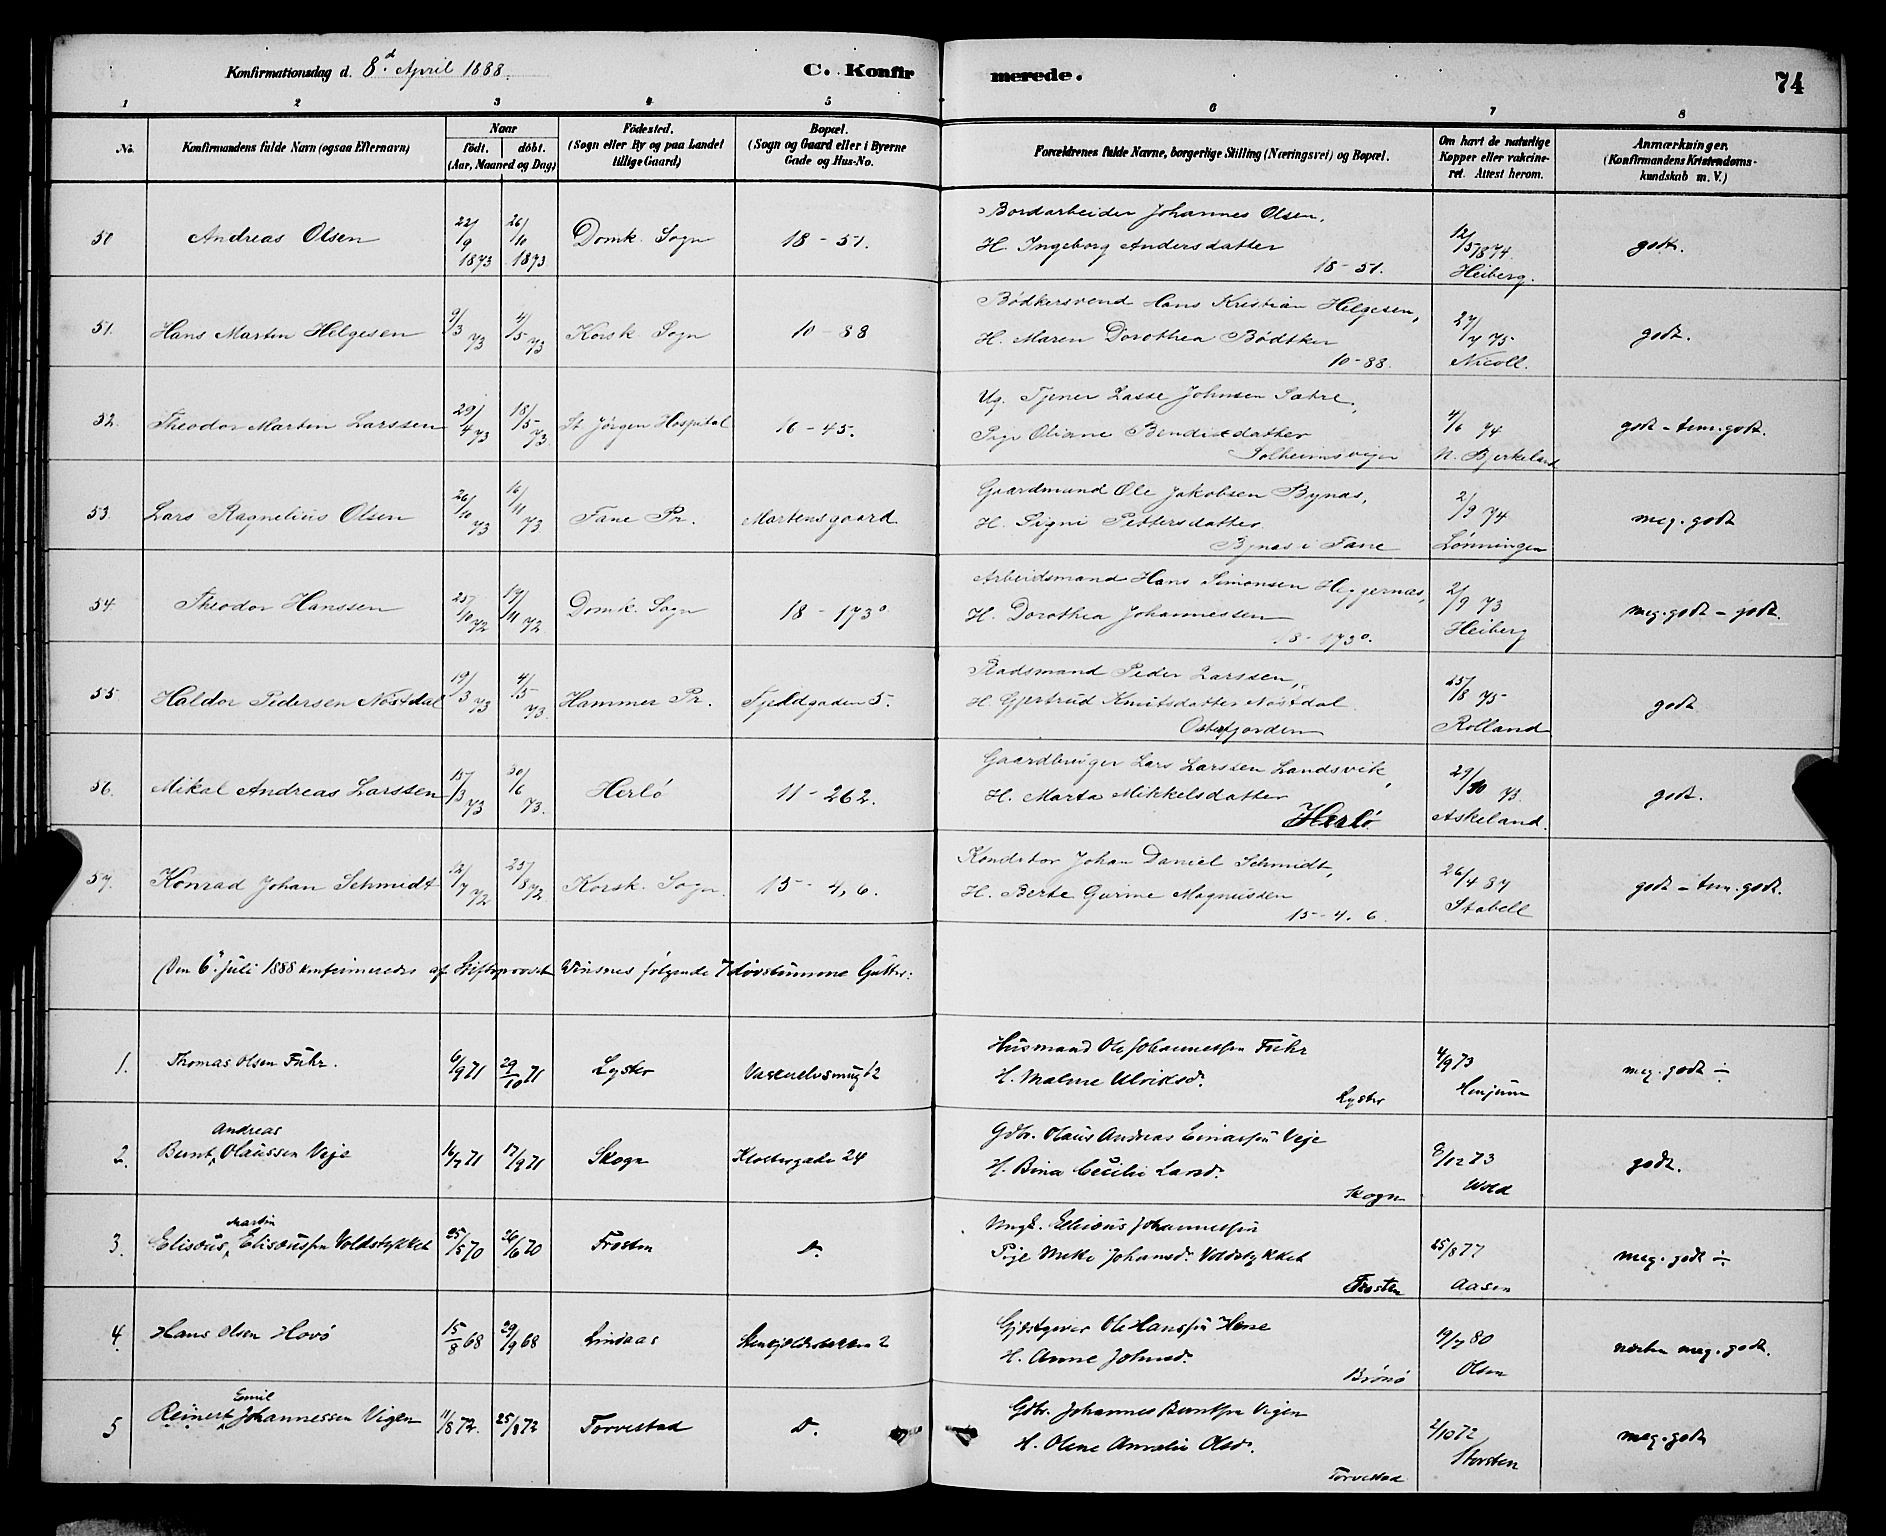 Konfirmationsdag d. 8d April 1888. C. Konfirmerede. 74
1 2 3 4 5 6 7 8
No. Konfirmandens fulde Navn (ogsaa Efternavn) Naar födt. döbt. (Aar, Maaned og Dag) Födested. (Sogn eller By og paa Landet tillige Gaard) Bopæl. (Sogn og Gaard eller i Byerne Gade og Hus-No. Forældrenes fulde Navne, borgerlige Stilling (Næringsvei) og Bopæl. Om havt de naturlige Kopper eller vakcineret. Attest herom. Anmærkninger. (Konfirmandens Kristendomskundskab m. V.)
50 Andreas Olsen 22/9 1873 26/10 1873 Domk. Sogn 18-51. Bordarbeider Johannes Olsen, 12/5 1874. godt.
H. Ingeborg Andersdatter
18-51. Heiberg.
51. Hans Martin Helgesen 9/3 73 4/5 73 Korsk. Sogn 10-88 Bödkersvend Hans Kristian Helgesen, 27/7 75 godt.
H. Maren Dorothea Bödtker
10-88. Nicoll.
52. Theodor Martin Larssen 29/4 73 18/5 73 St Jörgen Hospital 16-45. Ug. Tjener Lasse Johnsen Sætre, 4/6 74 godt - tem. godt.
Pige Oliane Bendixdatter
Solheimsvigen N. Bjerkeland
53. Lars Ragnelius Olsen 26/10 73 16/11 73 Fane Pr. Martensgaard Gaardmand Ole Jakobsen Bynæs, 2/9 74 meg. godt
H. Signi Pettersdatter
Bynæs i Fane Lönningen
54. Theodor Hanssen 25/10 72 19/11 72 Domk. Sogn 18-173º Arbeidsmand Hans Simonsen Heggernæs, 2/9 73 meg. godt - godt.
H. Dorothea Johannessen
18-173º. Heiberg
55. Haldor Pedersen Nöstdal 19/3 73 4/5 73. Hammer Pr. Fjeldgaden 5. Pladsmand Peder Larssen, 15/8 75 godt
H. Gjertrud Knutsdatter Nöstdal
Osterfjorden Rolland
56. Mikal Andreas Larssen 15/3 73 30/6 73. Herlö 11-262. Gaardbruger Lars Larssen Landsvik, 29/10 73. godt.
H. Marta Mikkelsdatter
Herlö Askeland.
57. Konrad Johan Schmidt 12/7 72 25/8 72 Korsk. Sogn. 15-4,6. Konditor Johan Daniel Schmidt, 26/4 87 godt - tem. godt.
H. Berte Gurine Magnussen
15-4.6. Stabell
Den 6te Juli 1888 konfirmeredes af Stiftsprovst Vinsnes fölgende 7 dövstumme Gutter:
1. Thomas Olsen Fuhr. 6/9 71 29/10 71 Lyster Vaskerelvsmug 12 Husmand Ole Johannessen Fuhr 4/9 73 meg. godt ÷
H. Malene Ulriksd.
Lyster Henjum
2. Bernt Andreas Olaussen Veje 16/7 71 17/9 71 Skogn Klostergade 24 Gdbr. Olaus Andreas Einarssen Veje 8/12 73 godt.
H. Bina Cecilie Larsd.
Skogn Wold
3. Elisæus Martin Elisæussen Voldstykket 25/5 70 26/6 70 Frosten D. Ungk. Elisæus Johannessen 25/8 77 meg. godt ÷
Pige Mette Johansd. Voldstykket
Frosten Aasen
4. Hans Olsen Hovö 15/8 68 29/9 68 Lindaas 2 Gjæstgiver Ole Hanssen 19/7 80 næsten meg. godt.
H. Anne Johnsd.
Brönö Olsen
5 Reinert Emil Johannessen Vigen 11/8 72. 25/8 72 Torvestad D. Gdbr. Johannes Berntsen Vigen 2/10 72 meg. godt
H. Olene Amalie Olsd.
Torvestad Storsten